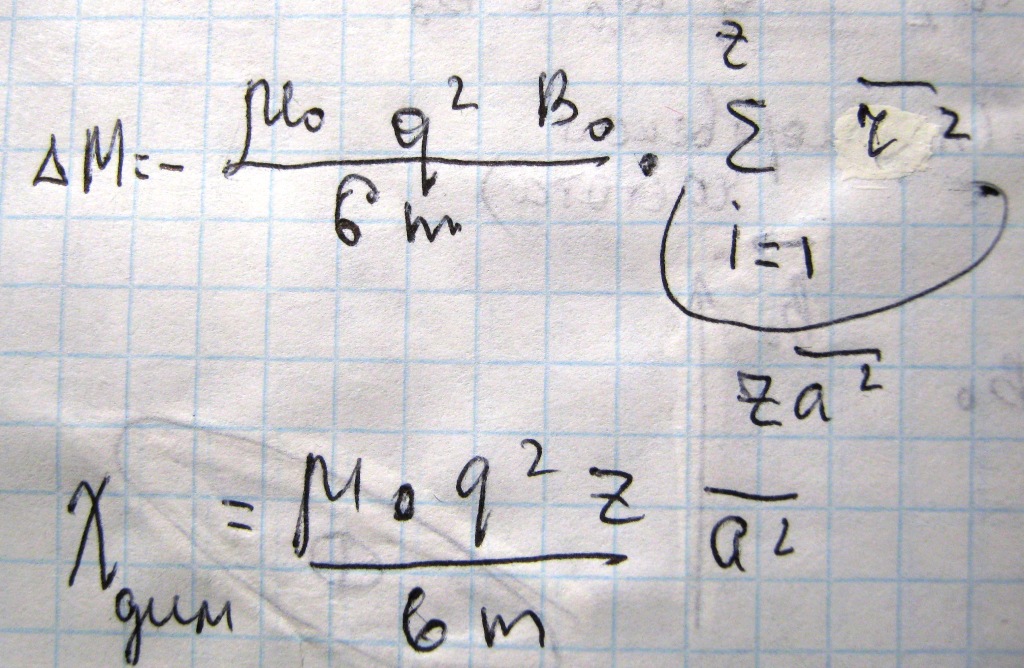 ΔM = - μ₀ q² B₀ / 6 m · Σ_{i=1}^{z} \overline{r}²
z \overline{a²}
χ_{дим} = μ₀ q² z / 6 m \overline{a²}